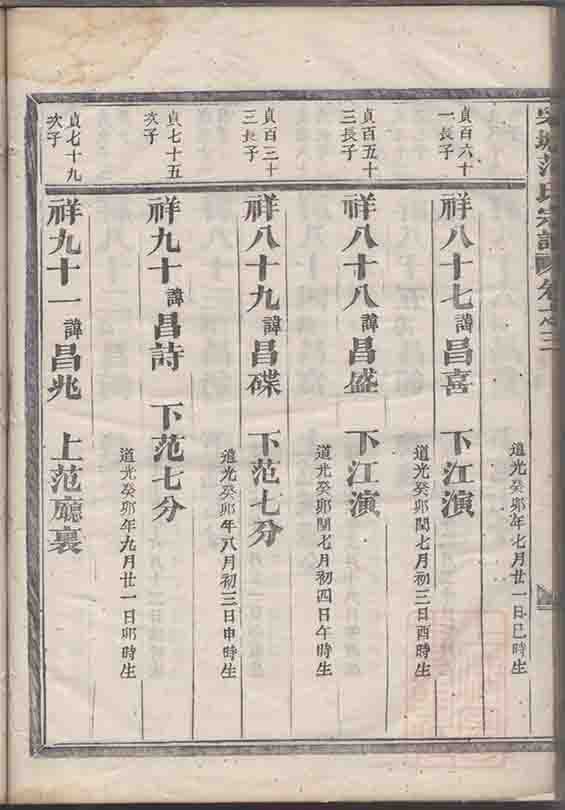 范氏宗譜
道光癸卯年七月廿一日巳時生
貞百六十
一長子
祥八十七諱昌喜 下江演
道光癸卯閏七月初三日酉時生
貞百五十
三長子
祥八十八諱昌盛 下江演
道光癸卯閏七月初四日午時生
貞百二十
三長子
祥八十九諱昌碟 下范七分
道光癸卯年八月初三日申時生
貞七十五
次子
祥九十諱昌詩 下范七分
道光癸卯年九月廿一日卯時生
貞七十九
次子
祥九十一諱昌兆 上范廳裏